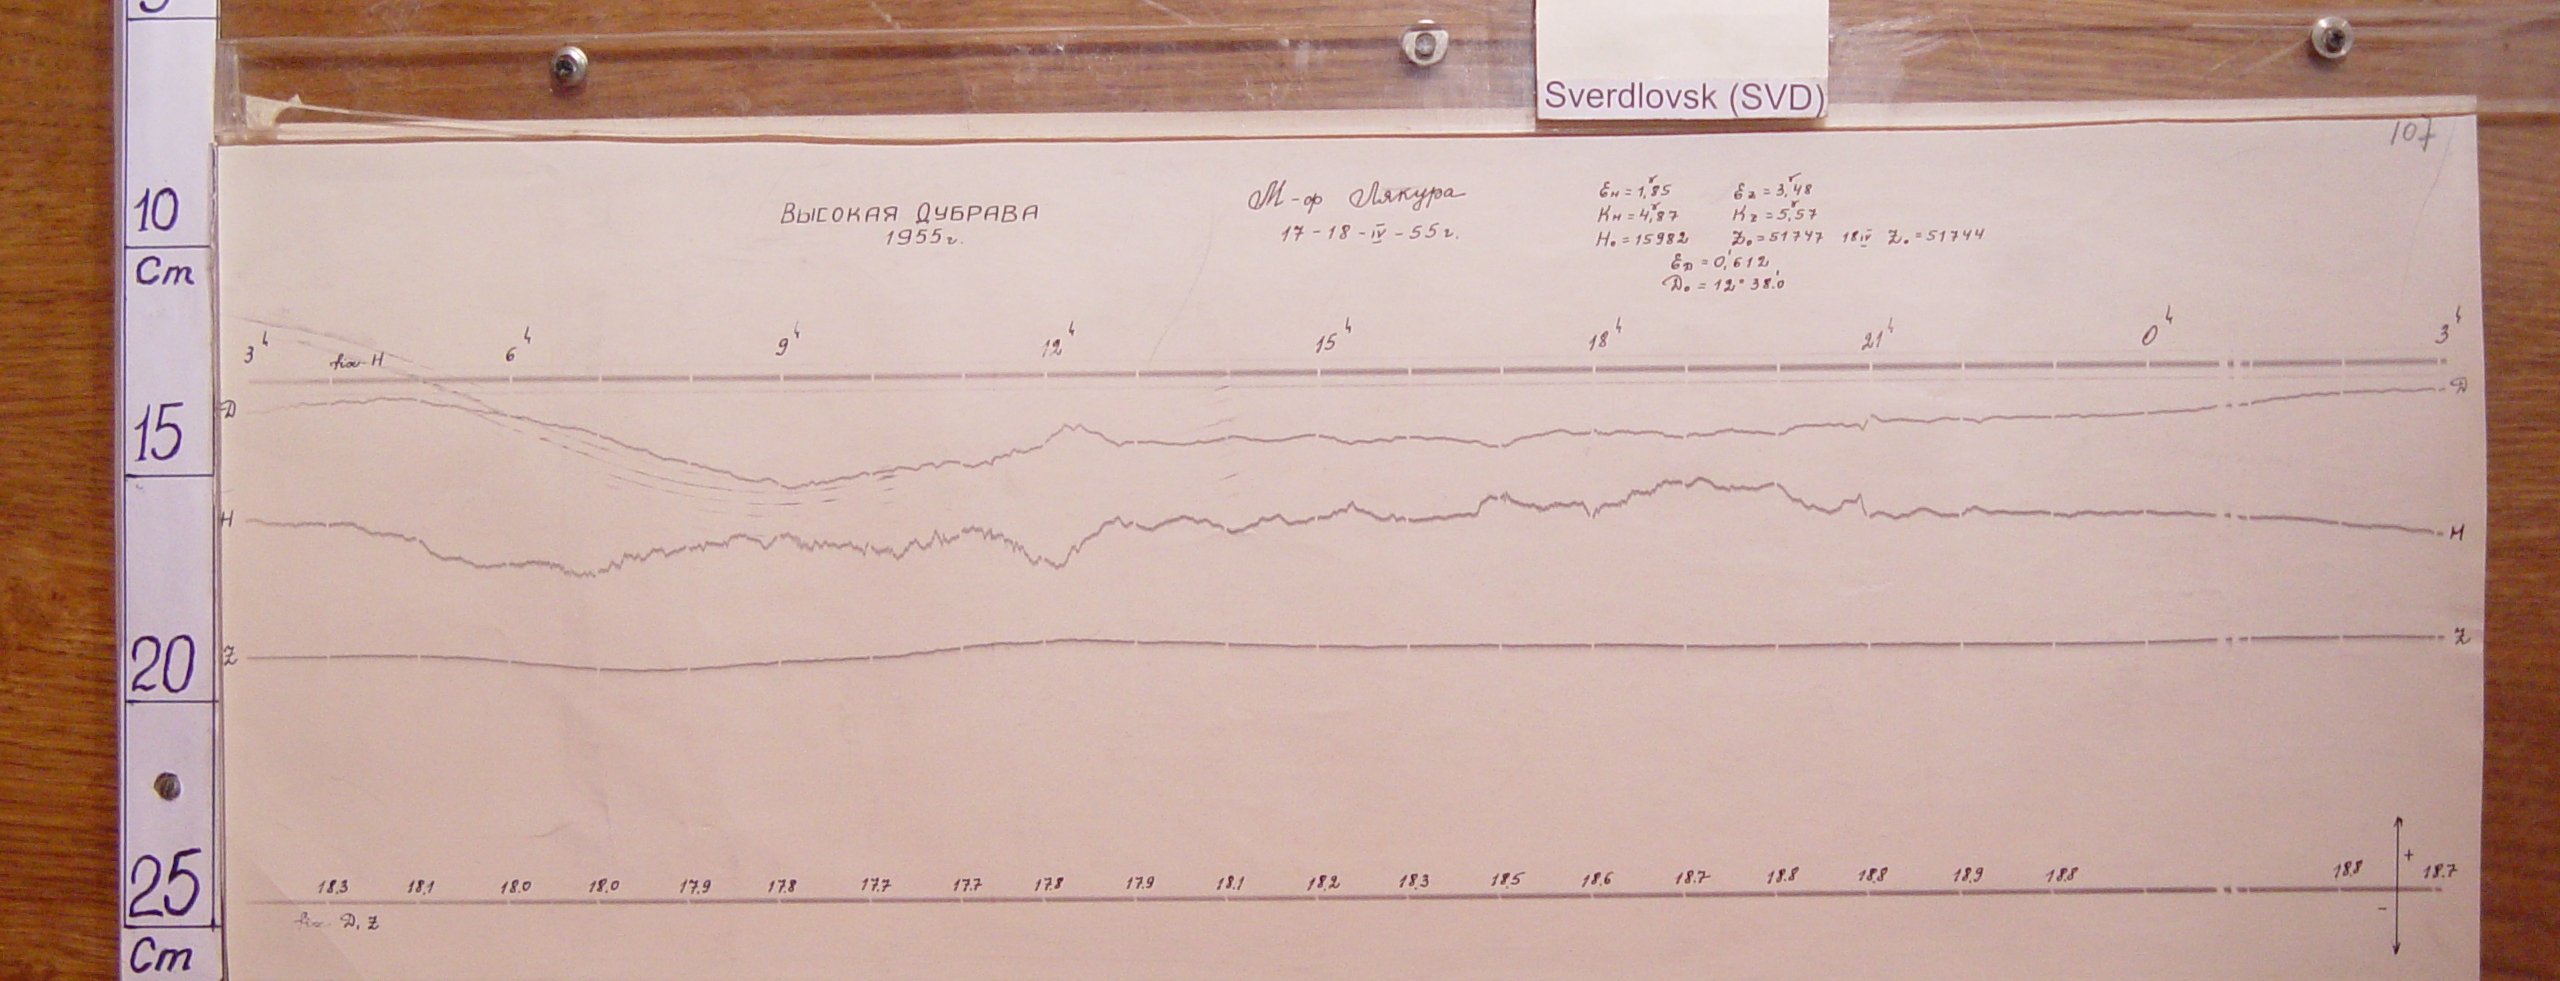 Sverdlovsk (SVD)
107
10
Cm
15
20
25
Cm
ВЫСОКАЯ ДУБРАВА
1955г.
М-ф Лякура
17-18-IV-55г.
Ɛн = 1,85 Ɛz = 3,48
Kн = 4,87 Kz = 5,57
H₀ = 15982 Z₀ = 51747 18IV Z₀ = 51744
ƐD = 0,'612
D₀ = 12° 38.'0
3ч 6ч 9ч 12ч 15ч 18ч 21ч 0ч 3ч
fix H
D D
H H
Z Z
18.3 18.1 18.0 18.0 17.9 17.8 17.7 17.7 17.8 17.9 18.1 18.2 18.3 18.5 18.6 18.7 18.8 18.8 18.9 18.8 18.8 18.7
+
−
fix D, Z